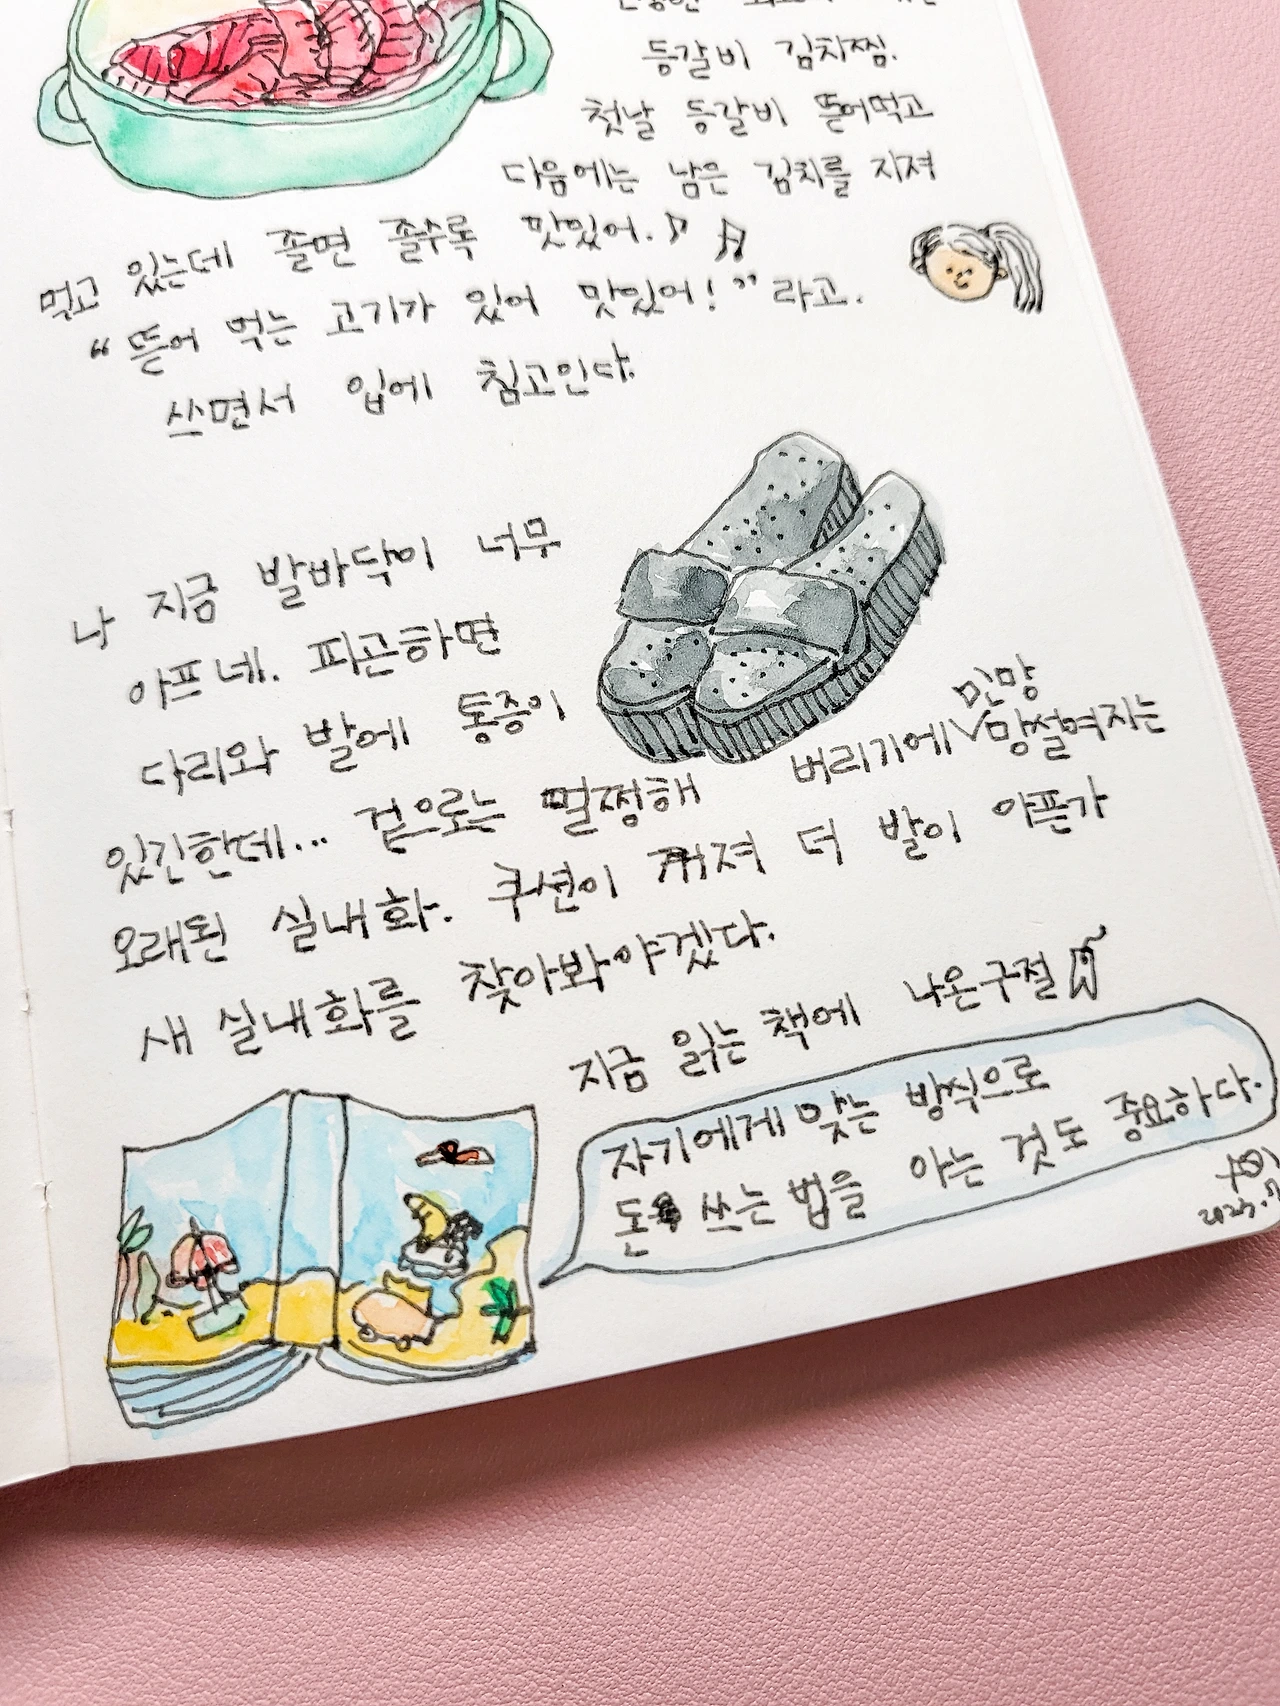 등갈비 김치찜.
첫날 등갈비 뜯어먹고
다음에는 남은 김치를 지져
먹고 있는데 졸면 졸수록 맛있어.♪ ♬
“뜯어 먹는 고기가 있어 맛있어!” 라고.
쓰면서 입에 침고인다.
나 지금 발바닥이 너무
아프네. 피곤하면
다리와 발에 통증이
있긴한데... 겉으로는 멀쩡해 버리기에 민망
망설여지는
오래된 실내화. 쿠션이 꺼져 더 발이 아픈가
새 실내화를 찾아봐야겠다.
지금 읽는 책에 나온구절
자기에게 맞는 방식으로
돈 쓰는 법을 아는 것도 중요하다.